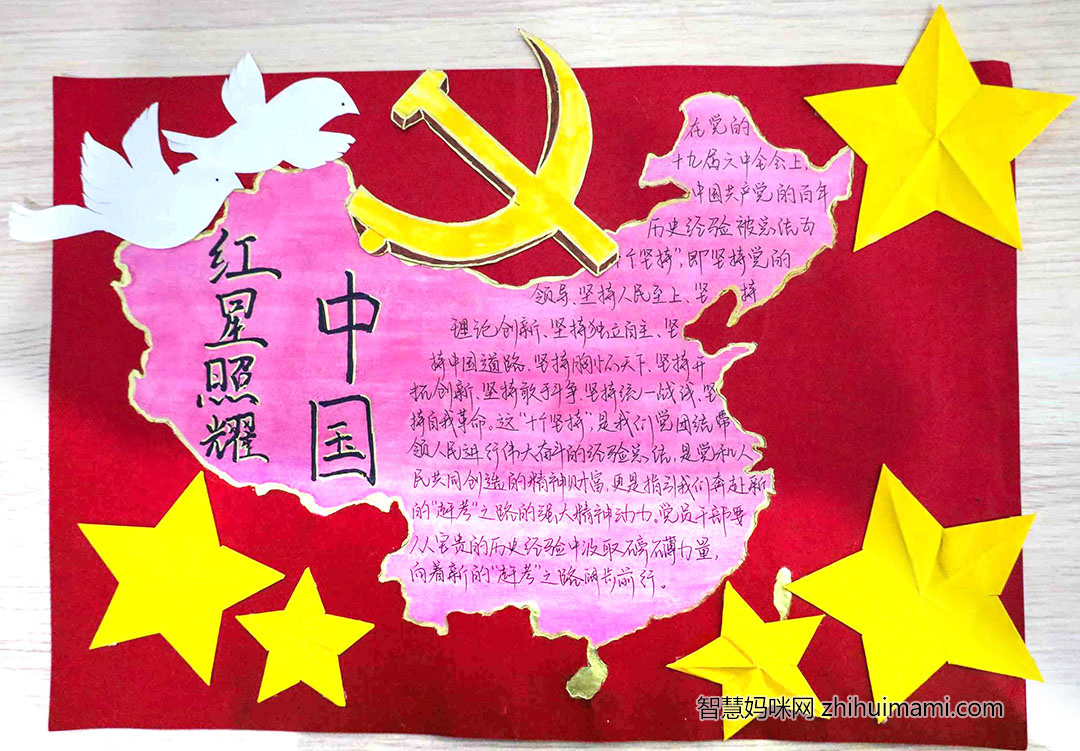 红星照耀
中国
在党的
十九届六中全会上，
中国共产党的百年
历史经验被总结为
“十个坚持”，即坚持党的
领导、坚持人民至上、坚持
理论创新、坚持独立自主、坚
持中国道路、坚持胸怀天下、坚持开
拓创新、坚持敢于斗争、坚持统一战线、坚
持自我革命。这“十个坚持”，是我们党团结带
领人民进行伟大奋斗的经验总结，是党和人
民共同创造的精神财富，更是指引我们奔赴新
的“赶考”之路的强大精神动力。党员干部要
从宝贵的历史经验中汲取磅礴力量，
向着新的“赶考”之路阔步前行。
智慧妈咪网 zhihuimami.com